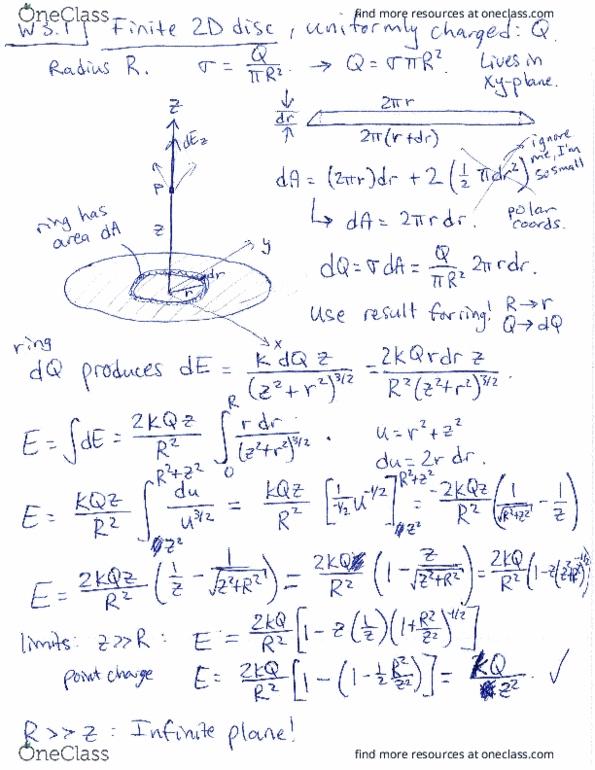 OneClass
find more resources at oneclass.com
W3.1 Finite 2D disc, uniformly charged: Q.
Radius R. σ = Q/πR² → Q = σπR². Lives in xy-plane.
z
dEz
P
z
ring has area dA
y
dr
r
x
dr
2πr
2π(r+dr)
dA = (2πr)dr + 2(½πdr²)
ignore me, I'm so small
↳ dA = 2πr dr.
polar coords.
dQ = σdA = Q/πR² 2πrdr.
Use result for ring! R→r Q→dQ
ring
dQ produces dE = k dQ z/(z²+r²)^3/2 = 2kQrdr z/R²(z²+r²)^3/2.
E = ∫dE = 2kQz/R² ∫₀^R r dr/(z²+r²)^3/2.
u = r²+z²
du = 2r dr.
E = kQz/R² ∫_z²^R²+z² du/u^3/2 = kQz/R² [1/-½ u^-1/2]_z²^R²+z² = -2kQz/R² (1/√R²+z² - 1/z)
E = 2kQz/R² (1/z - 1/√z²+R²) = 2kQ/R² (1 - z/√z²+R²) = 2kQ/R² (1-z(z²+R²)^-1/2)
limits: z>>R: E = 2kQ/R² [1 - z(1/z)(1+R²/z²)^-1/2]
point charge E = 2kQ/R² [1-(1-½R²/z²)] = kQ/z². ✓
R >> z : Infinite plane!
OneClass
find more resources at oneclass.com